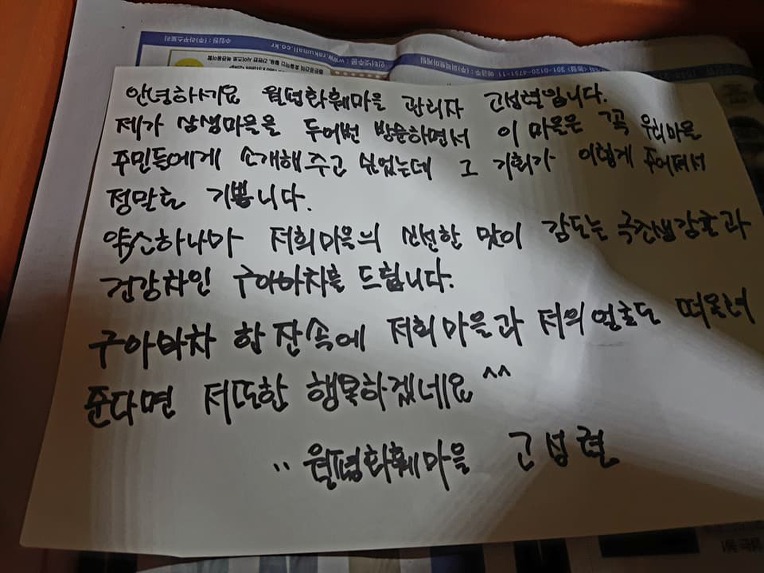 www.rakumall.co.kr
안녕하세요 월평화훼마을 관리자 고성협입니다.
제가 상생마을을 두어번 방문하면서 이 마을은 꼭 우리마을
주민들에게 소개해 주고 싶었는데 그 기회가 이렇게 주어져서
정말로 기쁩니다.
약소하나마 저희마을의 신선한 맛이 감도는 생강청과
건강차인 구아바차를 드립니다.
구아바차 한 잔속에 저희 마을과 저의 얼굴도 떠올려
준다면 저또한 행복하겠네요 ^^
월평화훼마을